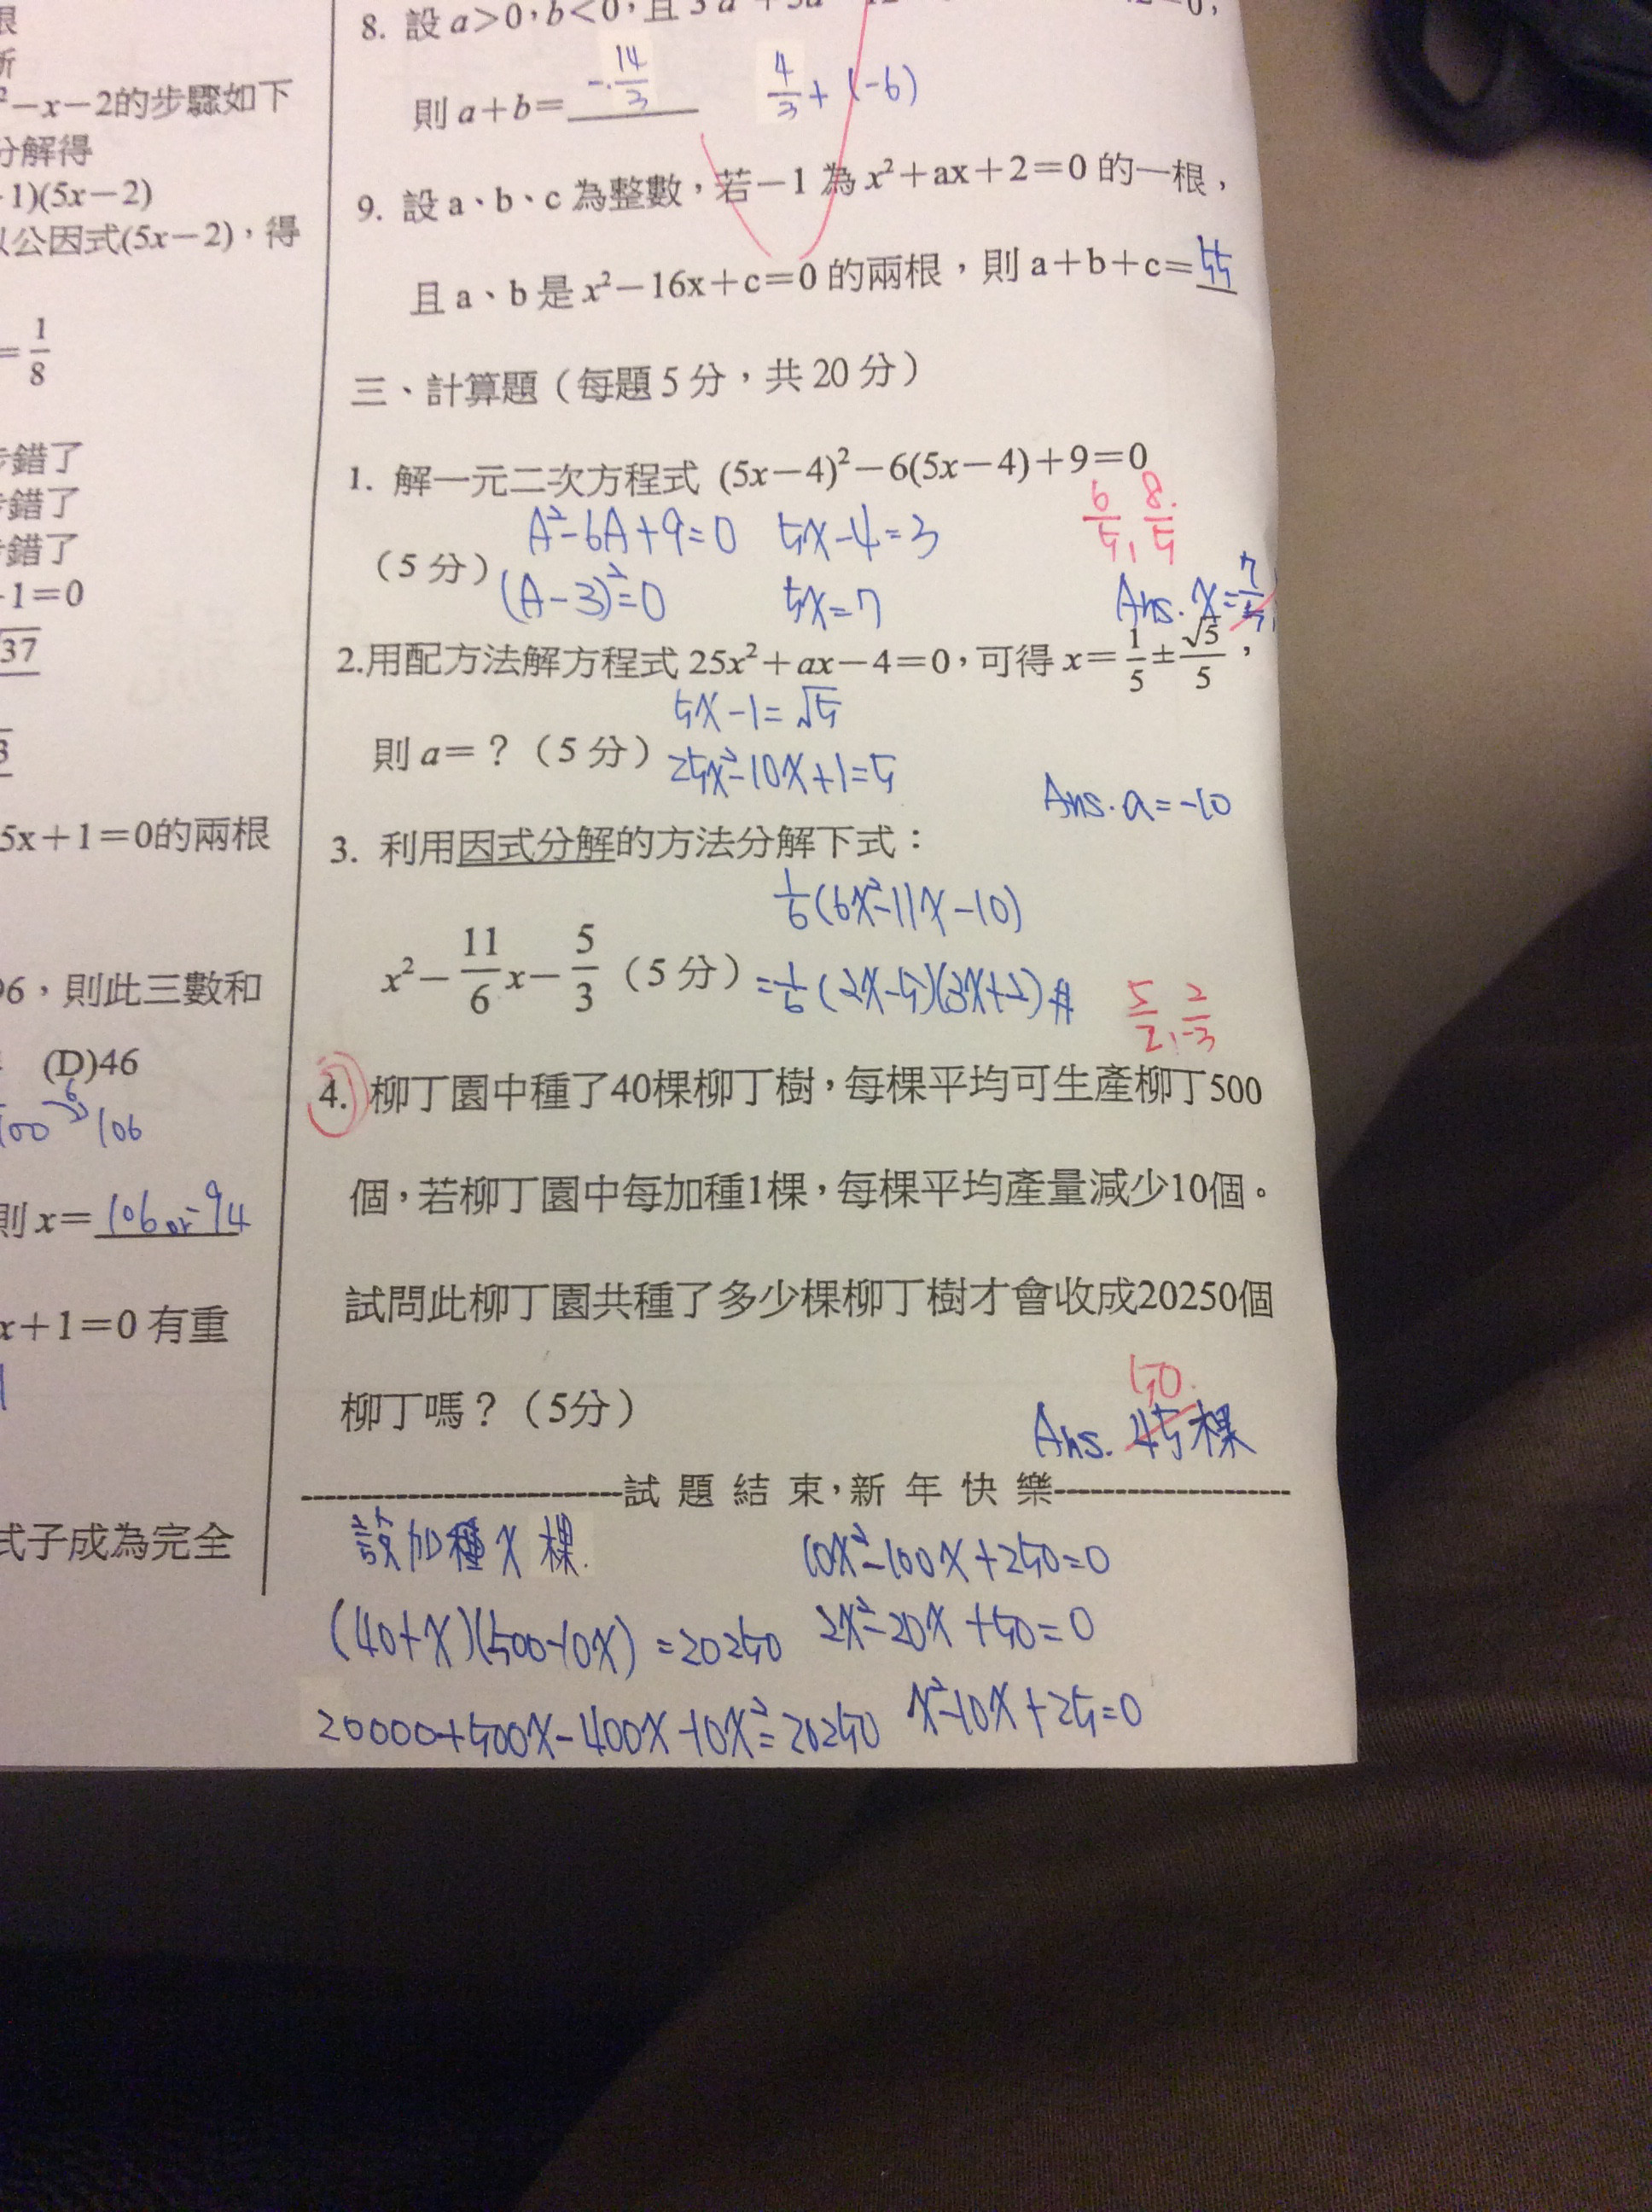 ²－x－2的步驟如下
分解得
1)(5x－2)
公因式(5x－2)，得
＝1/8
錯了
錯了
錯了
1＝0
37
3
5x＋1＝0的兩根
06，則此三數和
(D)46
6
100 106
則 x＝106 or -94
x＋1＝0 有重
式子成為完全
8. 設 a＞0，b＜0，且 3
則 a＋b＝ -14/3 4/3 + (-6)
9. 設 a、b、c 為整數，若－1 為 x²＋ax＋2＝0 的一根，
且 a、b 是 x²－16x＋c＝0 的兩根，則 a＋b＋c＝55
三、計算題（每題 5 分，共 20 分）
1. 解一元二次方程式 (5x－4)²－6(5x－4)＋9＝0
A²-6A+9=0 5x-4=3 6/5, 8/5
（5 分）(A-3)²=0 5x=7 Ans. x=7/5
2.用配方法解方程式 25x²＋ax－4＝0，可得 x＝1/5±√5/5，
5x-1=√5
則 a＝？（5 分）25x²-10x+1=5
Ans. a=-10
3. 利用因式分解的方法分解下式：
1/6(6x²-11x-10)
x²－11/6x－5/3（5 分）=1/6(2x-5)(3x+2)# 5/2, 2/-3
4. 柳丁園中種了40棵柳丁樹，每棵平均可生產柳丁500
個，若柳丁園中每加種1棵，每棵平均產量減少10個。
試問此柳丁園共種了多少棵柳丁樹才會收成20250個
50.
柳丁嗎？（5分） Ans. 45棵
試 題 結 束，新 年 快 樂
設加種x棵. 10x²-100x+250=0
(40+x)(500-10x)=20250 2x²-20x+50=0
20000+500x-400x-10x²=20250 x²-10x+25=0